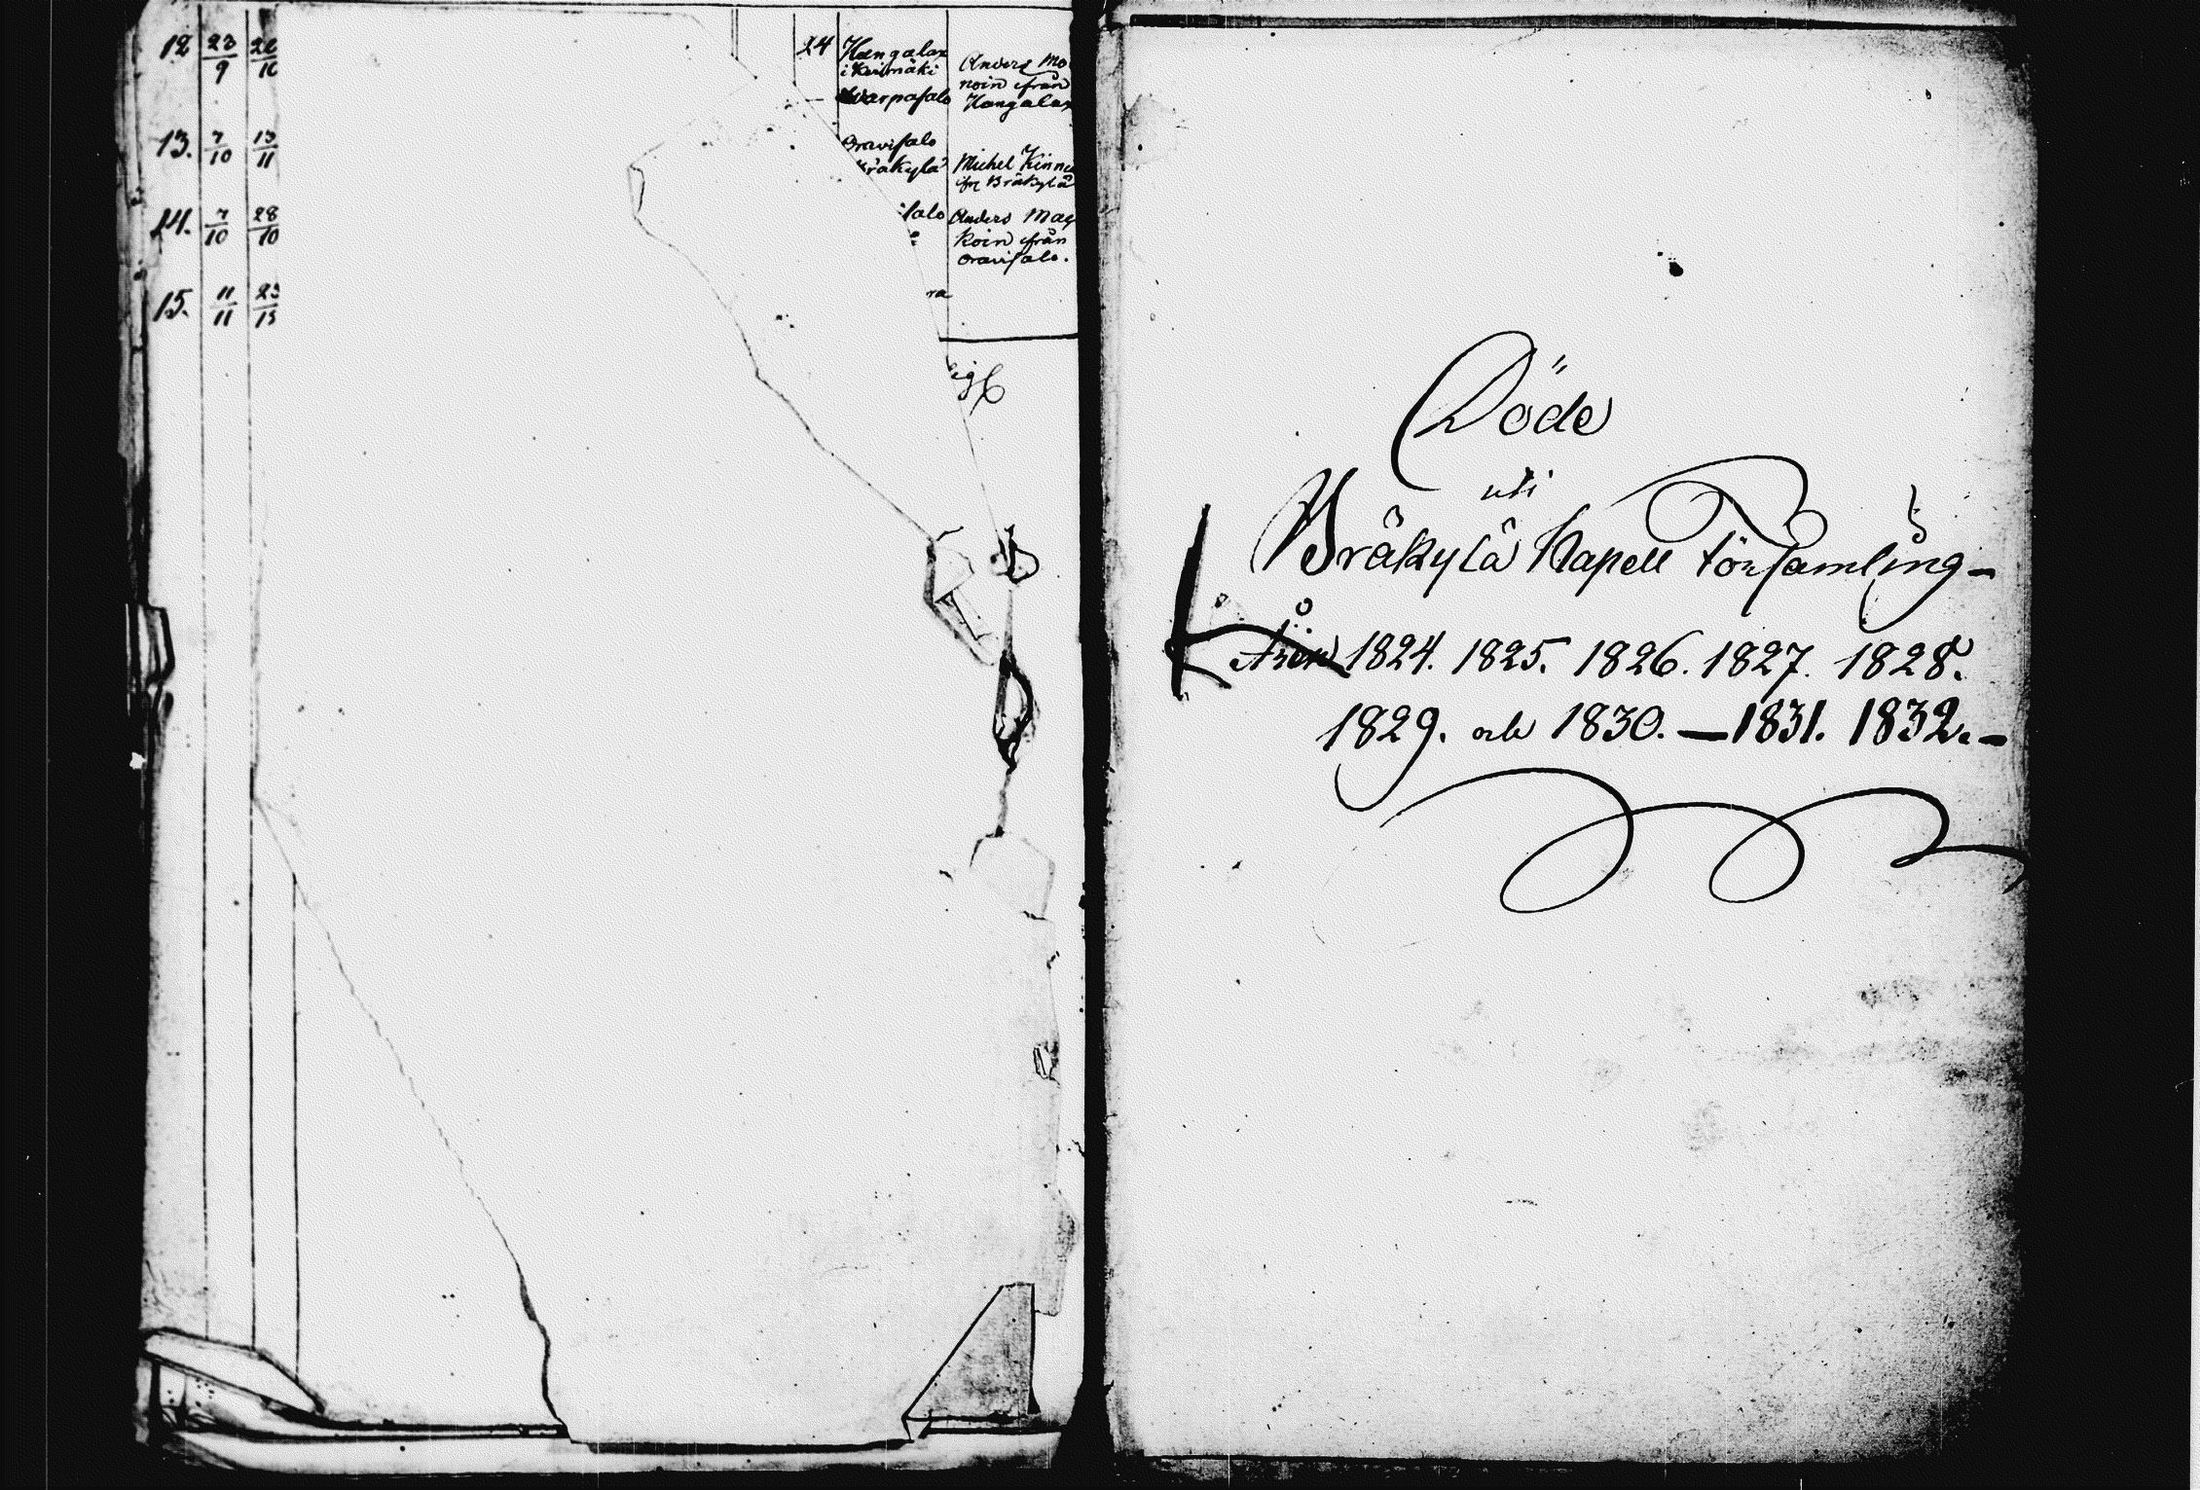 12 23/9 24 Hangalax
i Kerimäki
Warpasalo
Anders Mo
noin ifrån
Hangalax
13. 7/10 13/11 Oravisalo
Bräkylä
Michel Kinnu
ifr. Bräkylä
14. 7/10 28/10 salo
Anders Mac
koin ifrån
Oravisalo.
15. 11/11
Döde
uti
Bräkylä Kapell Församling-
Åren 1824. 1825. 1826. 1827. 1828.
1829. och 1830. — 1831. 1832. -